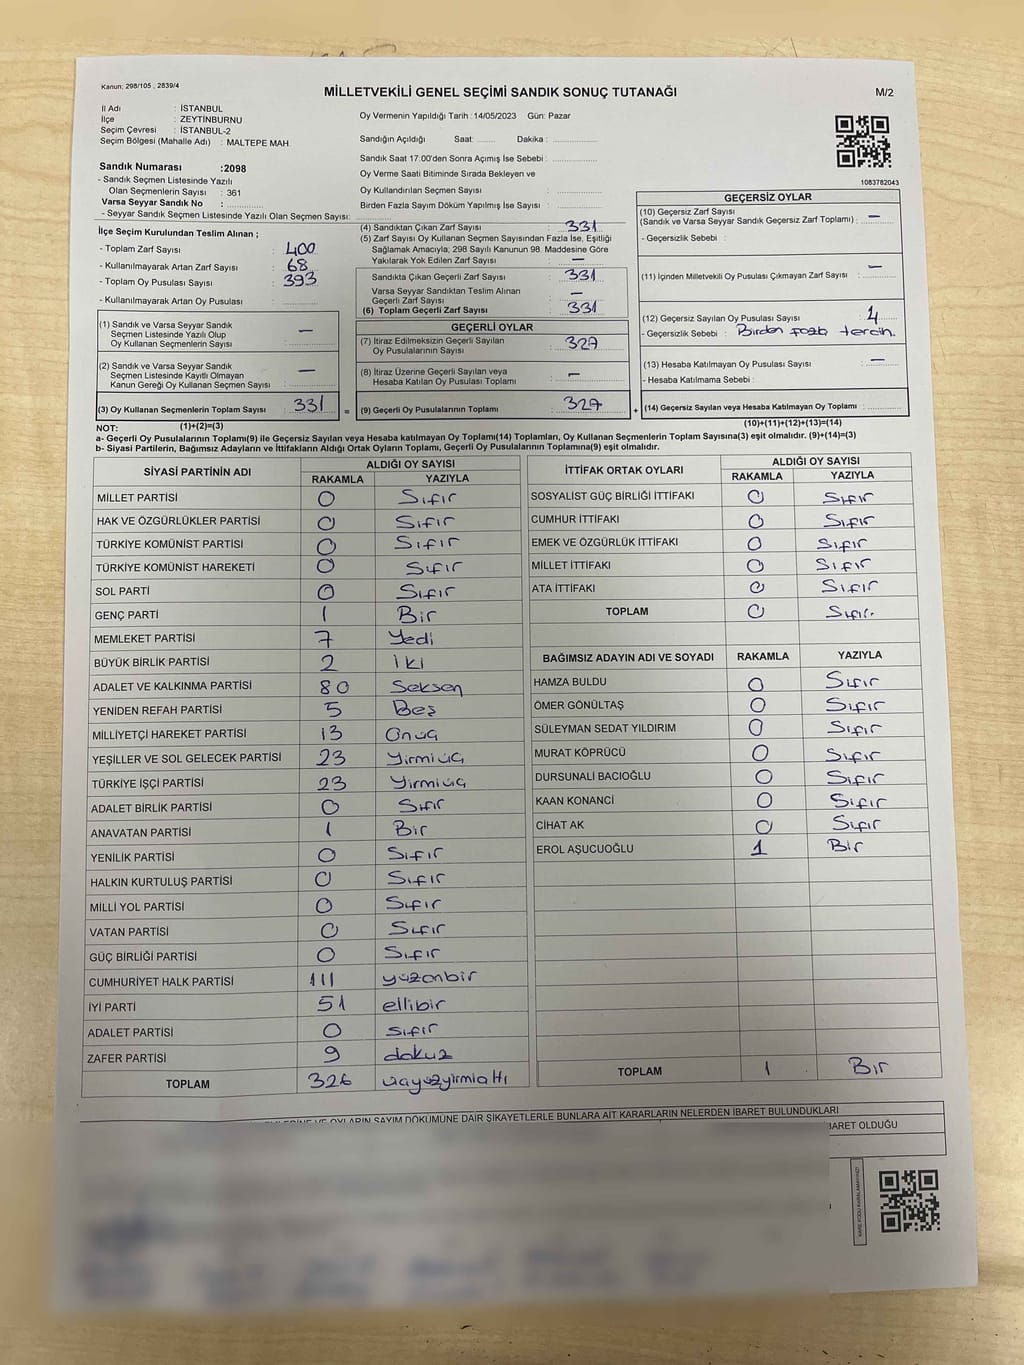 Kanun: 298/105 , 2839/4
MİLLETVEKİLİ GENEL SEÇİMİ SANDIK SONUÇ TUTANAĞI
M/2
İl Adı : İSTANBUL
İlçe : ZEYTİNBURNU
Seçim Çevresi : İSTANBUL-2
Seçim Bölgesi (Mahalle Adı) : MALTEPE MAH.
Sandık Numarası :2098
- Sandık Seçmen Listesinde Yazılı
Olan Seçmenlerin Sayısı : 361
Varsa Seyyar Sandık No :
- Seyyar Sandık Seçmen Listesinde Yazılı Olan Seçmen Sayısı:
Oy Vermenin Yapıldığı Tarih :14/05/2023 Gün: Pazar
Sandığın Açıldığı Saat: Dakika :
Sandık Saat 17:00'den Sonra Açımış İse Sebebi :
Oy Verme Saati Bitiminde Sırada Bekleyen ve
Oy Kullandırılan Seçmen Sayısı :
Birden Fazla Sayım Döküm Yapılmış İse Sayısı :
1083782043
İlçe Seçim Kurulundan Teslim Alınan ;
- Toplam Zarf Sayısı : 400
- Kullanılmayarak Artan Zarf Sayısı : 68
- Toplam Oy Pusulası Sayısı : 393
- Kullanılmayarak Artan Oy Pusulası :
(1) Sandık ve Varsa Seyyar Sandık
Seçmen Listesinde Yazılı Olup
Oy Kullanan Seçmenlerin Sayısı : —
(2) Sandık ve Varsa Seyyar Sandık
Seçmen Listesinde Kayıtlı Olmayan
Kanun Gereği Oy Kullanan Seçmen Sayısı : —
(3) Oy Kullanan Seçmenlerin Toplam Sayısı : 331
(4) Sandıktan Çıkan Zarf Sayısı : 331
(5) Zarf Sayısı Oy Kullanan Seçmen Sayısından Fazla İse, Eşitliği
Sağlamak Amacıyla; 298 Sayılı Kanunun 98. Maddesine Göre
Yakılarak Yok Edilen Zarf Sayısı : —
Sandıkta Çıkan Geçerli Zarf Sayısı : 331
Varsa Seyyar Sandıktan Teslim Alınan
Geçerli Zarf Sayısı : —
(6) Toplam Geçerli Zarf Sayısı : 331
GEÇERLİ OYLAR
(7) İtiraz Edilmeksizin Geçerli Sayılan
Oy Pusulalarının Sayısı : 327
(8) İtiraz Üzerine Geçerli Sayılan veya
Hesaba Katılan Oy Pusulası Toplamı : —
= (9) Geçerli Oy Pusulalarının Toplamı : 327
GEÇERSİZ OYLAR
(10) Geçersiz Zarf Sayısı
(Sandık ve Varsa Seyyar Sandık Geçersiz Zarf Toplamı) : —
- Geçersizlik Sebebi :
(11) İçinden Milletvekili Oy Pusulası Çıkmayan Zarf Sayısı : —
(12) Geçersiz Sayılan Oy Pusulası Sayısı : 4
- Geçersizlik Sebebi : Birden fazla tercih.
(13) Hesaba Katılmayan Oy Pusulası Sayısı : —
- Hesaba Katılmama Sebebi :
+ (14) Geçersiz Sayılan veya Hesaba Katılmayan Oy Toplamı :
NOT: (1)+(2)=(3) (10)+(11)+(12)+(13)=(14)
a- Geçerli Oy Pusulalarının Toplamı(9) ile Geçersiz Sayılan veya Hesaba katılmayan Oy Toplam(14) Toplamları, Oy Kullanan Seçmenlerin Toplam Sayısına(3) eşit olmalıdır. (9)+(14)=(3)
b- Siyasi Partilerin, Bağımsız Adayların ve İttifakların Aldığı Ortak Oyların Toplamı, Geçerli Oy Pusulalarının Toplamına(9) eşit olmalıdır.
SİYASİ PARTİNİN ADI ALDIĞI OY SAYISI
RAKAMLA YAZIYLA
MİLLET PARTİSİ 0 Sıfır
HAK VE ÖZGÜRLÜKLER PARTİSİ 0 Sıfır
TÜRKİYE KOMÜNİST PARTİSİ 0 Sıfır
TÜRKİYE KOMÜNİST HAREKETİ 0 Sıfır
SOL PARTİ 0 Sıfır
GENÇ PARTİ 1 Bir
MEMLEKET PARTİSİ 7 Yedi
BÜYÜK BİRLİK PARTİSİ 2 İki
ADALET VE KALKINMA PARTİSİ 80 Seksen
YENİDEN REFAH PARTİSİ 5 Beş
MİLLİYETÇİ HAREKET PARTİSİ 13 Onüç
YEŞİLLER VE SOL GELECEK PARTİSİ 23 Yirmiüç
TÜRKİYE İŞÇİ PARTİSİ 23 Yirmiüç
ADALET BİRLİK PARTİSİ 0 Sıfır
ANAVATAN PARTİSİ 1 Bir
YENİLİK PARTİSİ 0 Sıfır
HALKIN KURTULUŞ PARTİSİ 0 Sıfır
MİLLİ YOL PARTİSİ 0 Sıfır
VATAN PARTİSİ 0 Sıfır
GÜÇ BİRLİĞİ PARTİSİ 0 Sıfır
CUMHURİYET HALK PARTİSİ 111 yüzonbir
İYİ PARTİ 51 ellibir
ADALET PARTİSİ 0 sıfır
ZAFER PARTİSİ 9 dokuz
TOPLAM 326 üçyüzyirmialtı
İTTİFAK ORTAK OYLARI ALDIĞI OY SAYISI
RAKAMLA YAZIYLA
SOSYALİST GÜÇ BİRLİĞİ İTTİFAKI 0 Sıfır
CUMHUR İTTİFAKI 0 Sıfır
EMEK VE ÖZGÜRLÜK İTTİFAKI 0 Sıfır
MİLLET İTTİFAKI 0 Sıfır
ATA İTTİFAKI 0 Sıfır
TOPLAM 0 Sıfır.
BAĞIMSIZ ADAYIN ADI VE SOYADI RAKAMLA YAZIYLA
HAMZA BULDU 0 Sıfır
ÖMER GÖNÜLTAŞ 0 Sıfır
SÜLEYMAN SEDAT YILDIRIM 0 Sıfır
MURAT KÖPRÜCÜ 0 Sıfır
DURSUNALİ BACIOĞLU 0 Sıfır
KAAN KONANCİ 0 Sıfır
CİHAT AK 0 Sıfır
EROL AŞUCUOĞLU 1 Bir
TOPLAM 1 Bir
VE OYLARIN SAYIM DÖKÜMÜNE DAİR ŞİKAYETLERLE BUNLARA AİT KARARLARIN NELERDEN İBARET BULUNDUKLARI
İBARET OLDUĞU
KARE KODU KARALAMAYINIZ!